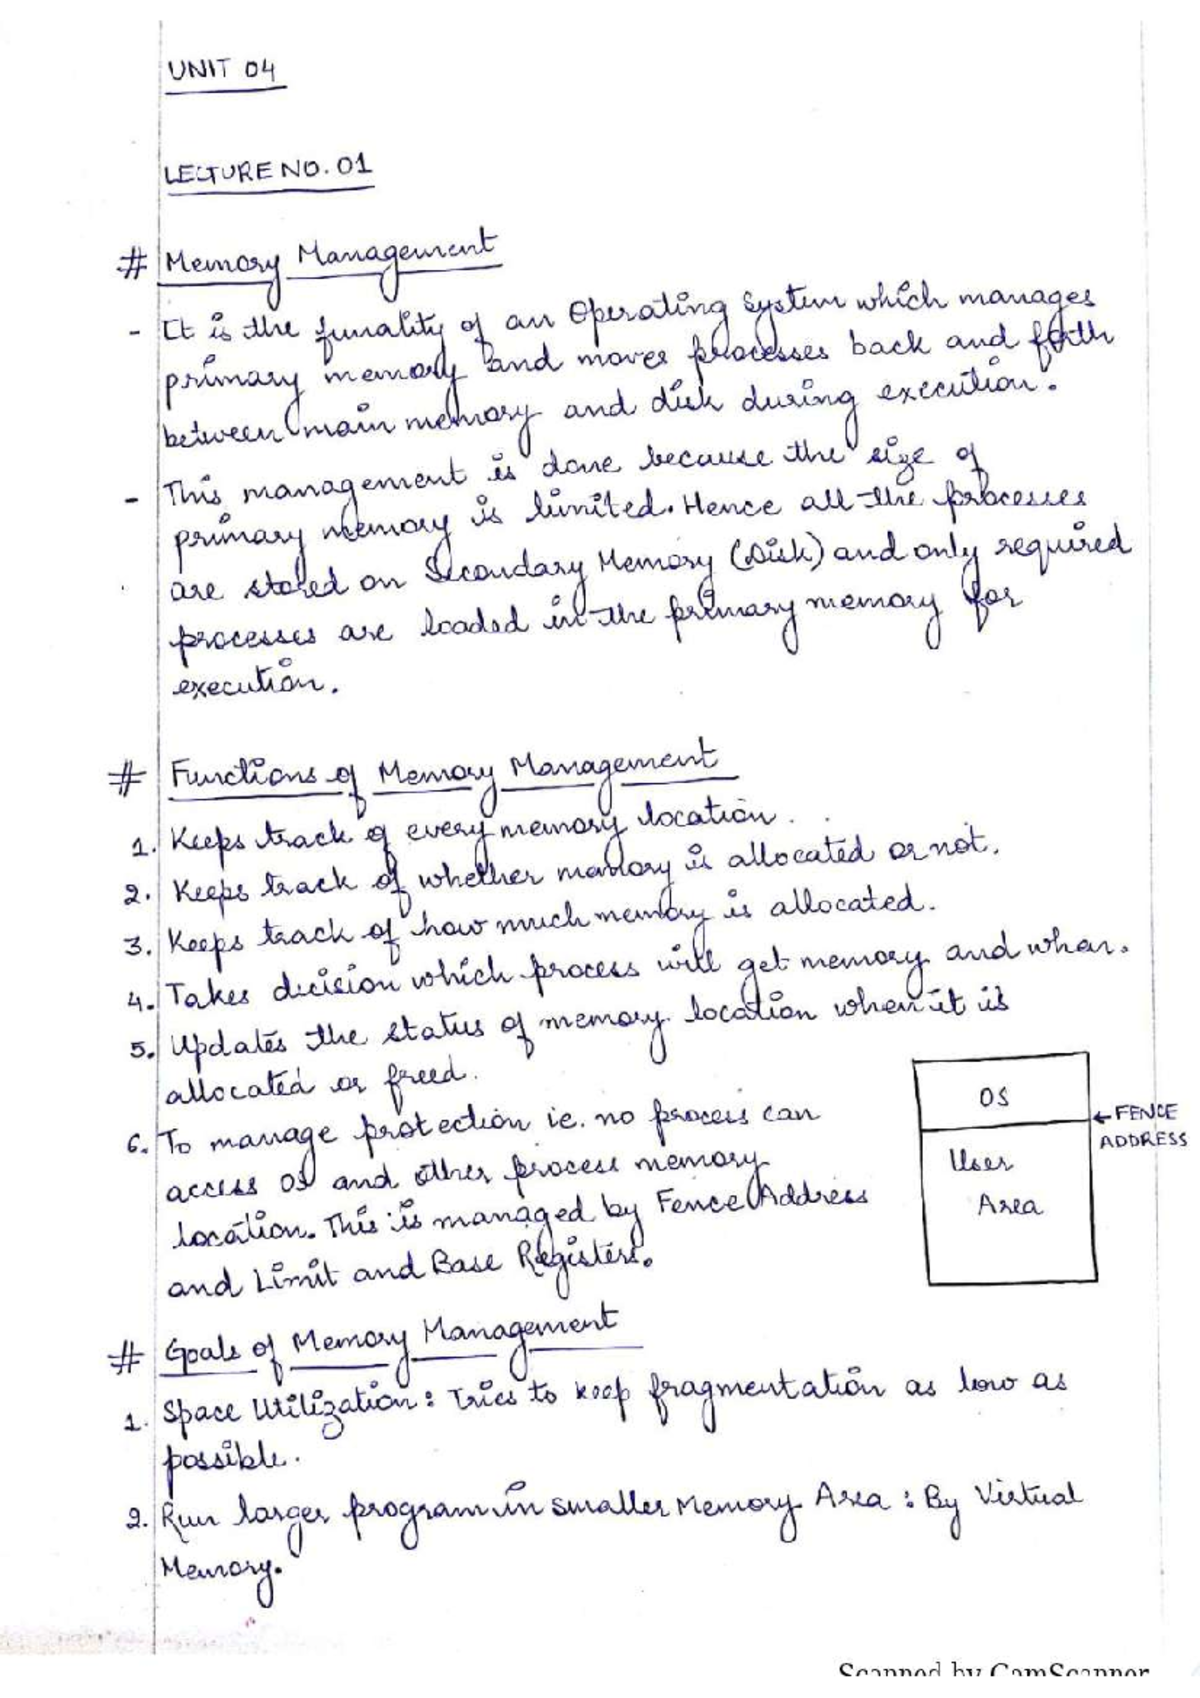 UNIT 04
LECTURE NO. 01
# Memory Management
- It is the funality of an Operating System which manages
primary memory and moves processes back and forth
between main memory and disk during execution.
- This management is done because the size of
primary memory is limited. Hence all the processes
are stored on Secondary Memory (Disk) and only required
processes are loaded in the primary memory for
execution.
# Functions of Memory Management
1. Keeps track of every memory location.
2. Keeps track of whether memory is allocated or not.
3. Keeps track of how much memory is allocated.
4. Takes decision which process will get memory and when.
5. Updates the status of memory location when it is
allocated or freed.
6. To manage protection ie. no process can
access OS and other process memory
location. This is managed by Fence Address
and Limit and Base Registers.
OS
← FENCE
ADDRESS
User
Area
# Goals of Memory Management
1. Space Utilization : Tries to keep fragmentation as low as
possible.
2. Run larger program in smaller Memory Area : By Virtual
Memory.
Scanned by CamScanner